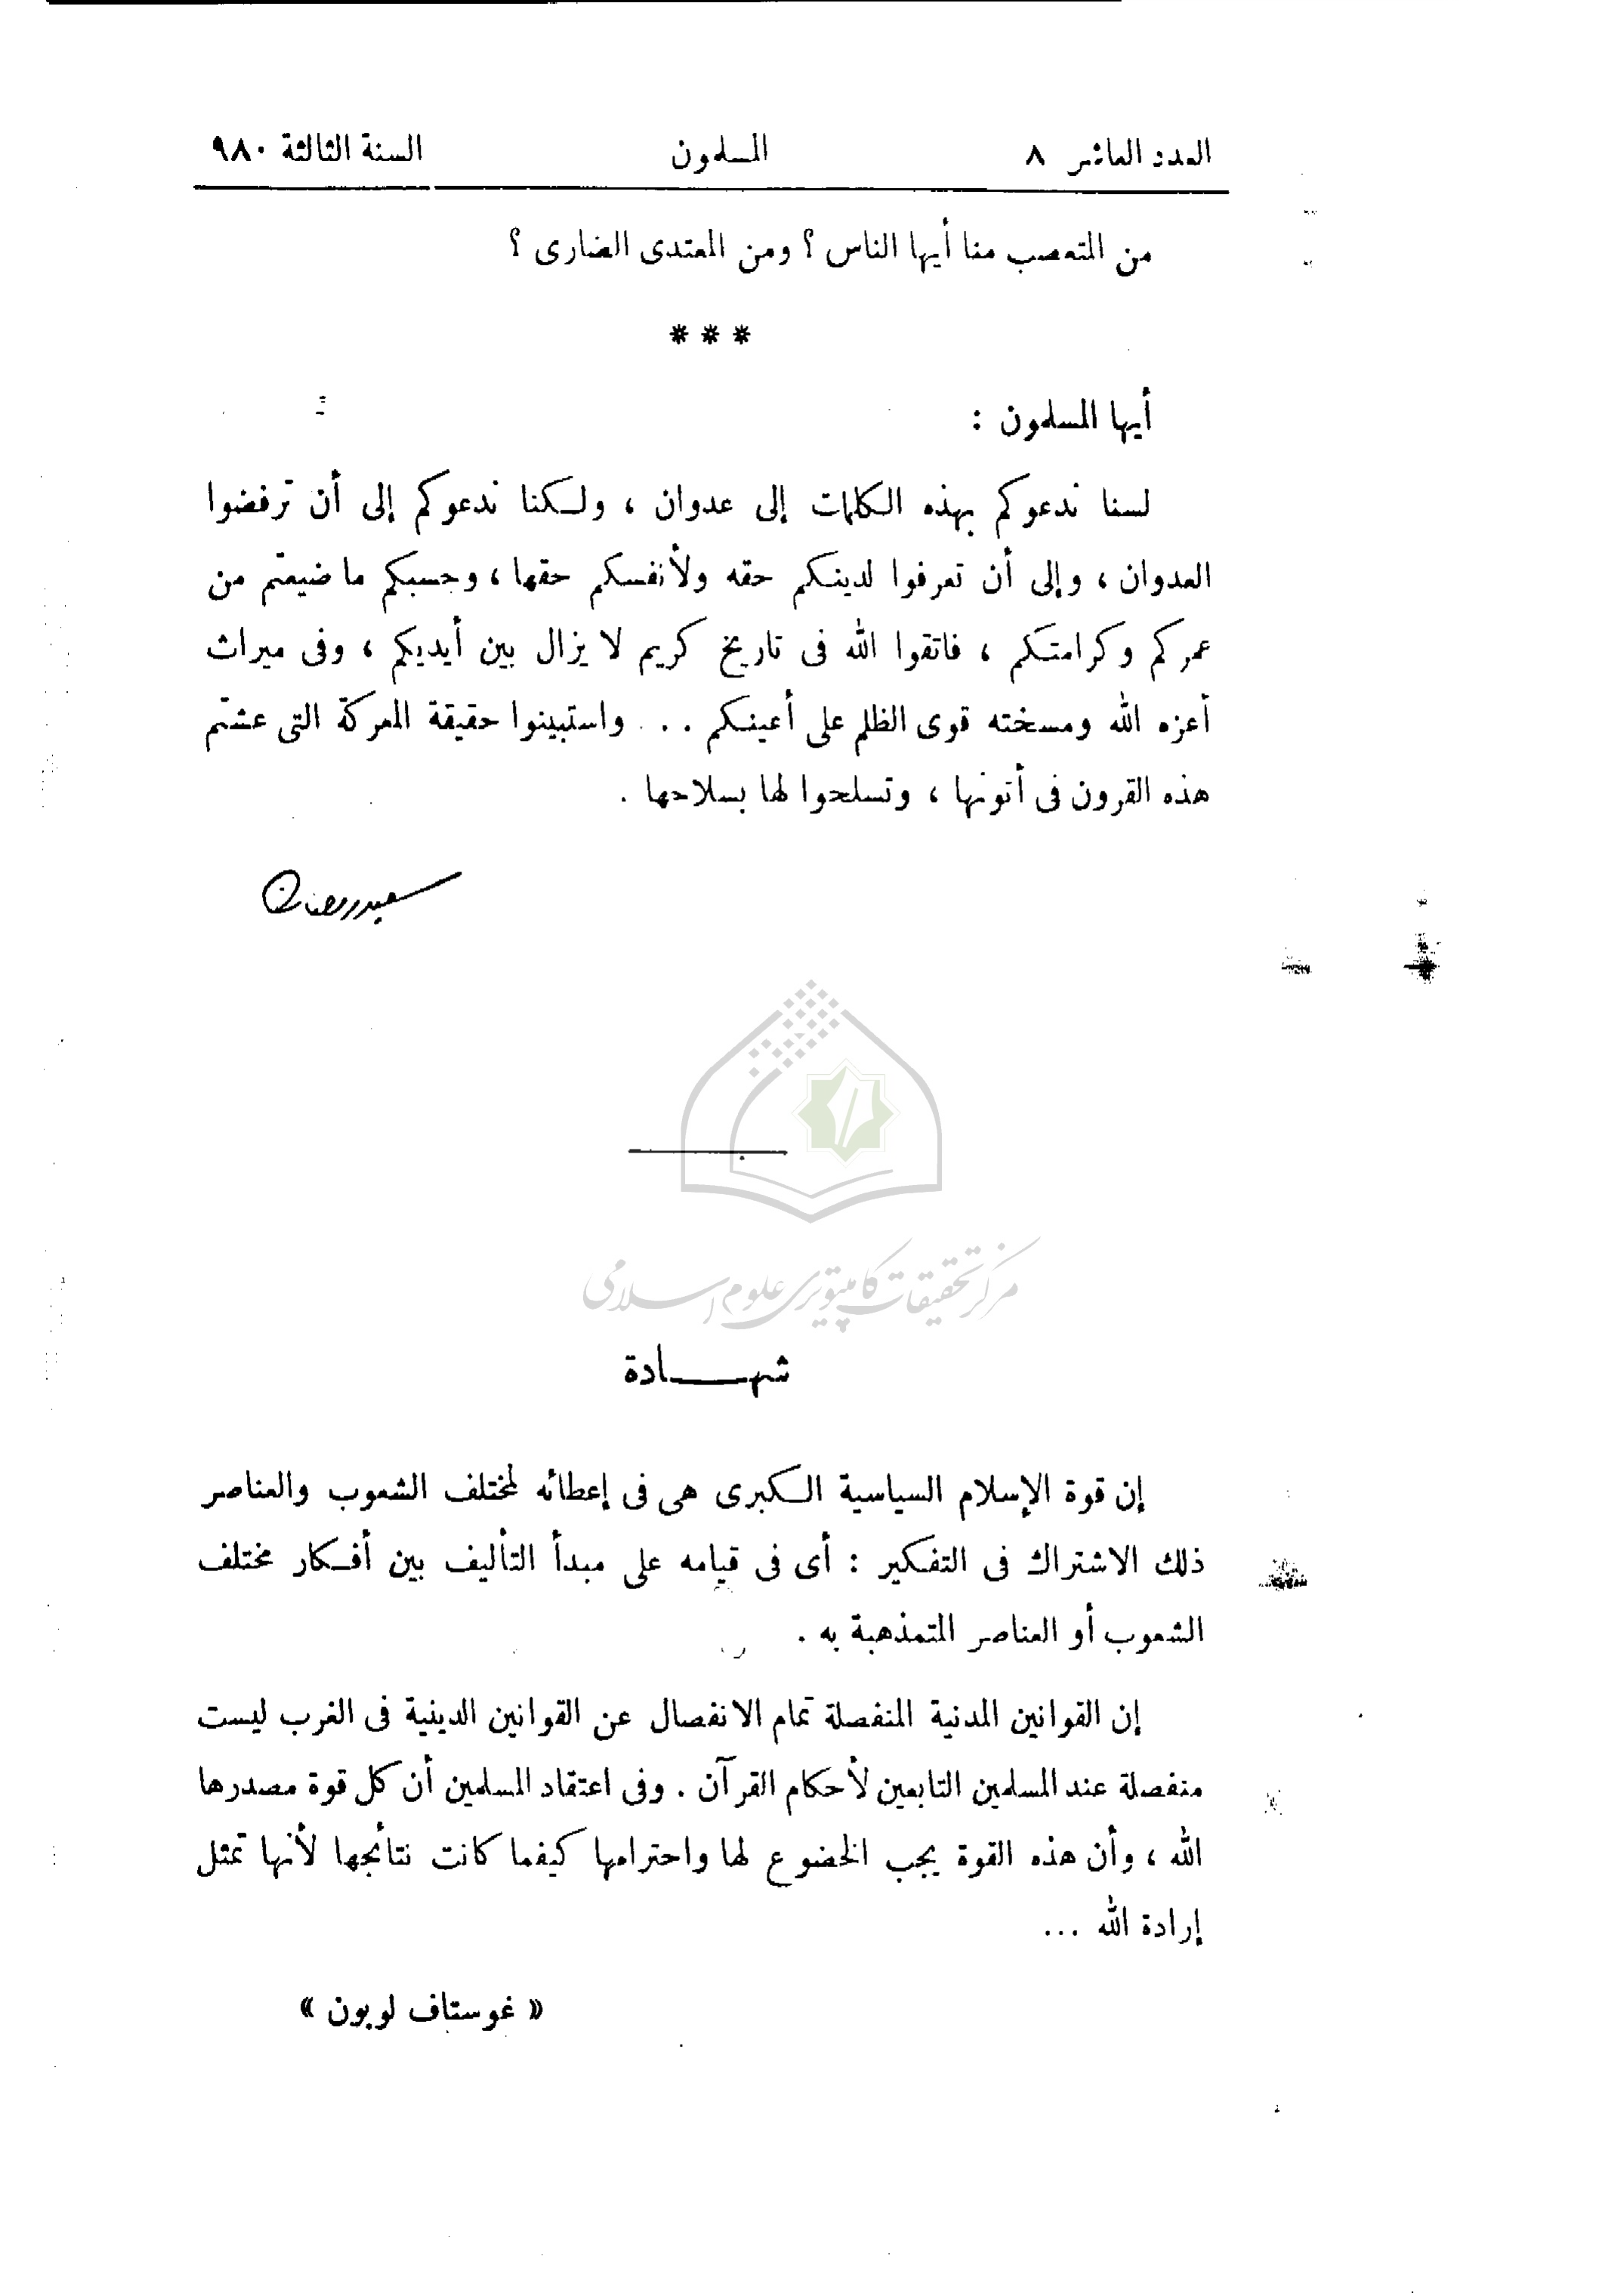 العدد العاشر ٨ المسلمون السنة الثالثة ٩٨٠
من المتعصب منا أيها الناس ؟ ومن المعتدى الضارى ؟
* * *
أيها المسلمون :
لسنا ندعوكم بهذه الكلمات إلى عدوان ، ولكنا ندعوكم إلى أن ترفضوا
العدوان ، وإلى أن تعرفوا لدينكم حقه ولأنفسكم حقها ، وحسبكم ما ضيعتم من
عمركم وكرامتكم ، فاتقوا الله فى تاريخ كريم لا يزال بين أيديكم ، وفى ميراث
أعزه الله ومسخته قوى الظلم على أعينكم . . . واستبينوا حقيقة المعركة التى عشتم
هذه القرون فى أتونها ، وتسلحوا لها بسلاحها .
سعيد رمضان
مركز تحقيقات كامپيوترى علوم اسلامى
شهادة
إن قوة الإسلام السياسية الكبرى هى فى إعطائه لمختلف الشعوب والعناصر
ذلك الاشتراك فى التفكير : أى فى قيامه على مبدأ التأليف بين أفكار مختلف
الشعوب أو العناصر المتمذهبة به .
إن القوانين المدنية المنفصلة تمام الانفصال عن القوانين الدينية فى الغرب ليست
منفصلة عند المسلمين التابعين لأحكام القرآن . وفى اعتقاد المسلمين أن كل قوة مصدرها
الله ، وأن هذه القوة يجب الخضوع لها واحترامها كيفما كانت نتائجها لأنها تمثل
إرادة الله ...
« غوستاف لوبون »